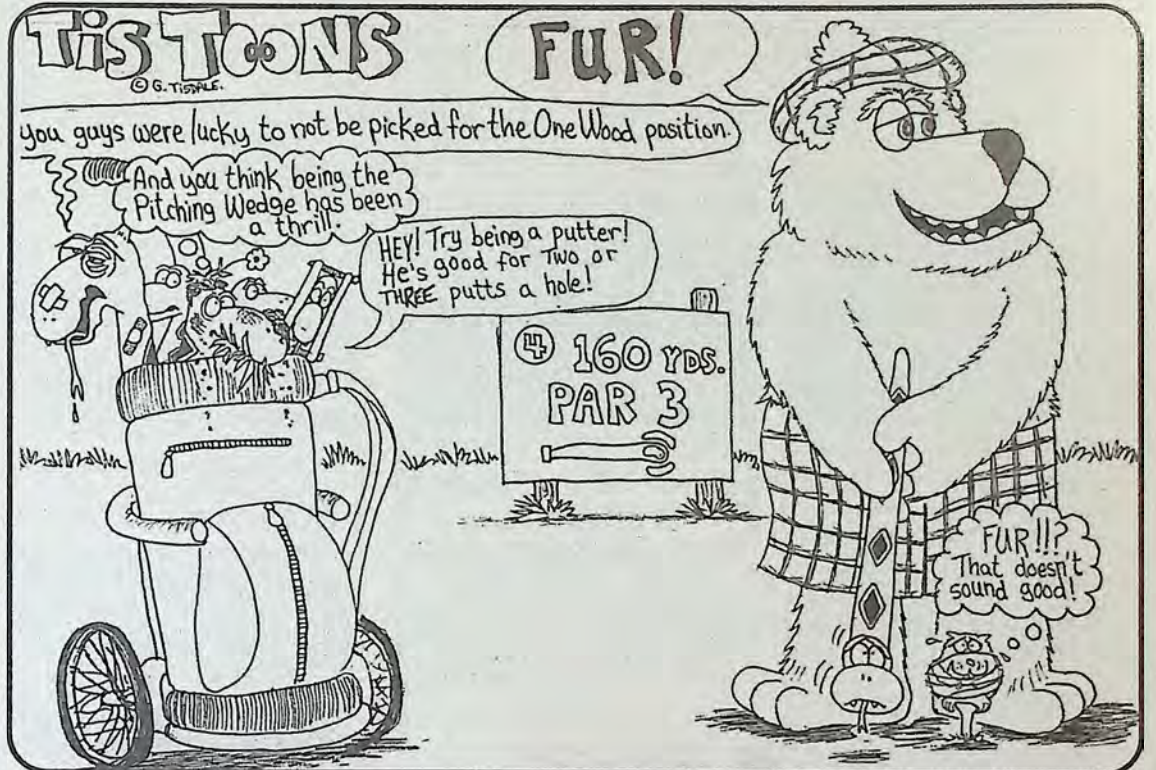 TiS TOONS
© G. TISDALE.
FUR!
you guys were lucky to not be picked for the One Wood position.
And you think being the
Pitching Wedge has been
a thrill.
HEY! Try being a putter!
He's good for Two or
THREE putts a hole!
4 160 YDS.
PAR 3
FUR!!!?
That doesn't
sound good!